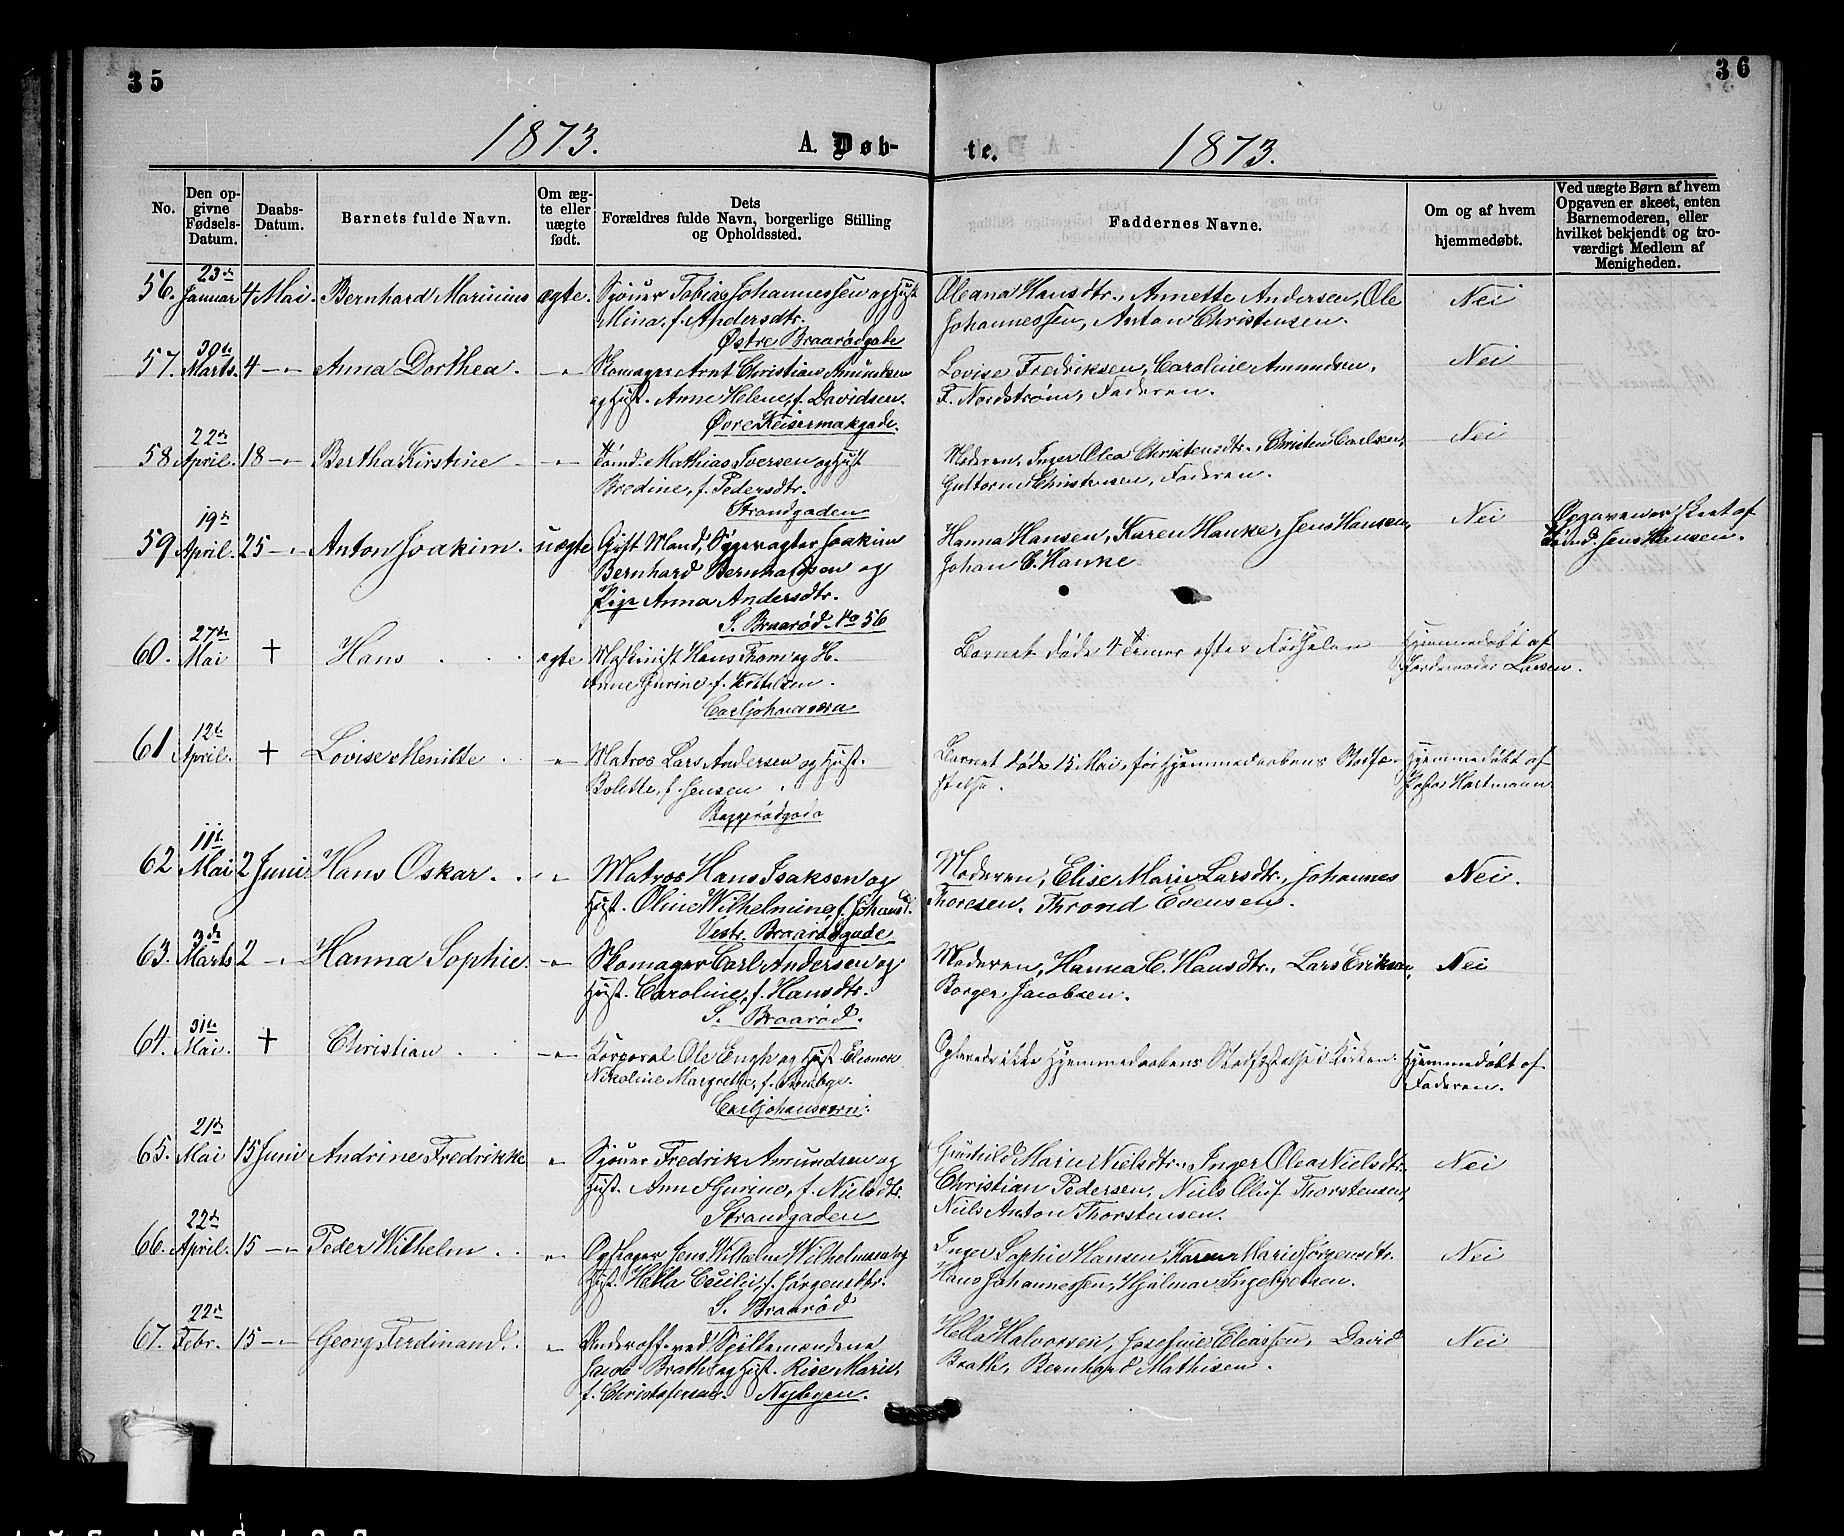 35
36
1873. A. Døb-
te. 1873.
No.
Den op-
givne
Fødsels-
Datum.
Daabs-
Datum.
Barnets fulde Navn.
Om æg-
te eller
uægte
født.
Dets
Forældres fulde Navn, borgerlige Stilling
og Opholdssted.
Faddernes Navne.
Om og af hvem
hjemmedøbt.
Ved uægte Børn af hvem
Opgaven er skeet, enten
Barnemoderen, eller
hvilket bekjendt og tro-
værdigt Medlem af
Menigheden.
56. 23de Januar 4 Mai. Bernhard Marinius ægte. Sjøuer Tobias Johannessen og Hust
Mina, f. Andersdtr.
Østre Braarødgade
Oleana Hansdtr., Annette Andersen, Ole
Johannessen, Anton Christensen.
Nei
57. 30te Marts. 4 -"- Anna Dorthea. -"- Skomager Arnt Christian Amundsen
og Hust. Anne Helene, f. Davidsen.
Øvre Keisermakgade.
Lovise Fredriksen, Caroline Amundsen,
F. Nordstrøm, Faderen.
Nei
58 22de April. 18 -"- Bertha Kirstine -"- Tømd. Mathias Iversen og Hust
Bredine, f. Pedersdtr.
Strandgaden
Moderen, Inger Olea Christensdtr., Christen Carlsen,
Guttorm Christensen, Faderen.
Nei
59 19de April. 25 -"- Anton Joakim. uægte Gift Mand, Joakim
Bernhard Bernhardsen og
Pige Anna Andersdtr.
S. Braarød No 56
Hanna Hansen, Karen Hanke, Jens Hansen,
Johan C. Hanke.
Nei
Opgaven er skeet af
Tømd. Jens Hansen.
60. 27de Mai † Hans ægte Maskinist Hans Thom og H.
Anne Gurine f. Kittelsen.
Carljohansværn
Barnet døde 4 Timer efter Fødselen
Hjemmedøbt af
Jordemoder Larsen.
61 12te April. † Lovise Menikke -"- Matros Lars Andersen og Hust.
Bolette, f. Jensen
Baggerødgade
Barnet døde 15 Mai, før Hjemmedaabens Stadfæ-
stelse.
Hjemmedøbt af
Hartmann
62 11te Mai 2 Juni Hans Oskar. -"- Matros Hans Isaksen og
Hust. Oline Wilhelmine, f. Johansd.
Vestr. Braarødgade
Moderen, Elise Marie Larsdtr., Johannes
Thoresen, Thrond Evensen.
Nei.
63. 3de Marts 2 -"- Hanna Sophie. -"- Skomager Carl Andersen og
Hust. Caroline, f. Hansdtr.
S. Braarød.
Moderen, Hanna C. Hansdtr., Lars Eriksen,
Borger Jacobsen.
Nei
64. 31te Mai. † Christian -"- Korporal Ole Engh og Hust Eleonore
Nikoline Margrethe, f.
Carljohansværn.
ikke Hjemmedaabens Stadfæstelse i Kirken.
Hjemmedøbt af
Faderen.
65. 21de Mai 15 Juni Andrine Fredrikke -"- Sjøuer Fredrik Amundsen og
Hust. Anne Gurine, f. Nielsdtr.
Strandgaden
Gunhild Marie Nielsdtr., Inger Olea Nielsdtr.
Christian Pedersen, Niels Oluf Thorstensen
Niels Anton Thorstensen.
Nei
66. 22de April. 15 -"- Peder Wilhelm -"- Jens Wilhelm Wilhelmsen og
Hust. Hella Cecilie, f. Jørgensdtr.
S. Braarød
Inger Sophie Hansen, Karen Marie Jørgensdtr.
Hans Johannessen, Hjalmar Ingebretsen.
Nei
67. 22de Febr. 15 -"- Georg Ferdinand. -"- Underoff. ved Spillemændene
Jacob Brath og Hust. Rise Marie,
f. Christofersen. Nybyen.
Hella Halvorsen, Josefine Eliassen, David
Brath, Bernhard Mathisen.
Nei